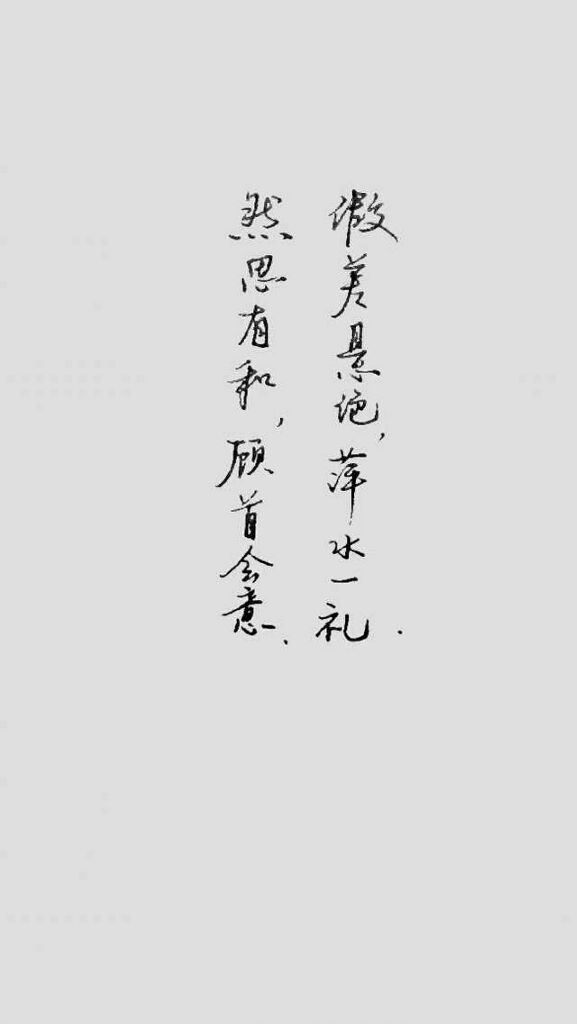 傲差悬绝,萍水一礼.
然思有和,顾首会意.